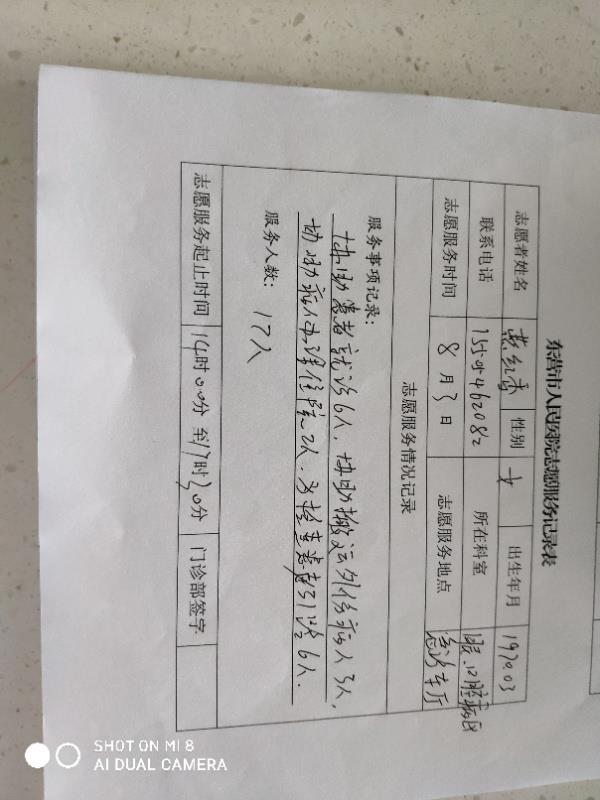 东营市人民医院志愿服务记录表
志愿者姓名 燕红香 性别 女 出生年月 1970.03
联系电话 15554462082 所在科室 眼、口腔病区
志愿服务时间 8月3日 志愿服务地点 急诊车厅
志愿服务情况记录
服务事项记录:
协助患者就诊6人,协助搬运外伤病人3人,
协助病人办理住院2人,为检查患者引路6人.
服务人数: 17人
志愿服务起止时间 14时00分 至17时30分 门诊部签字
SHOT ON MI 8
AI DUAL CAMERA